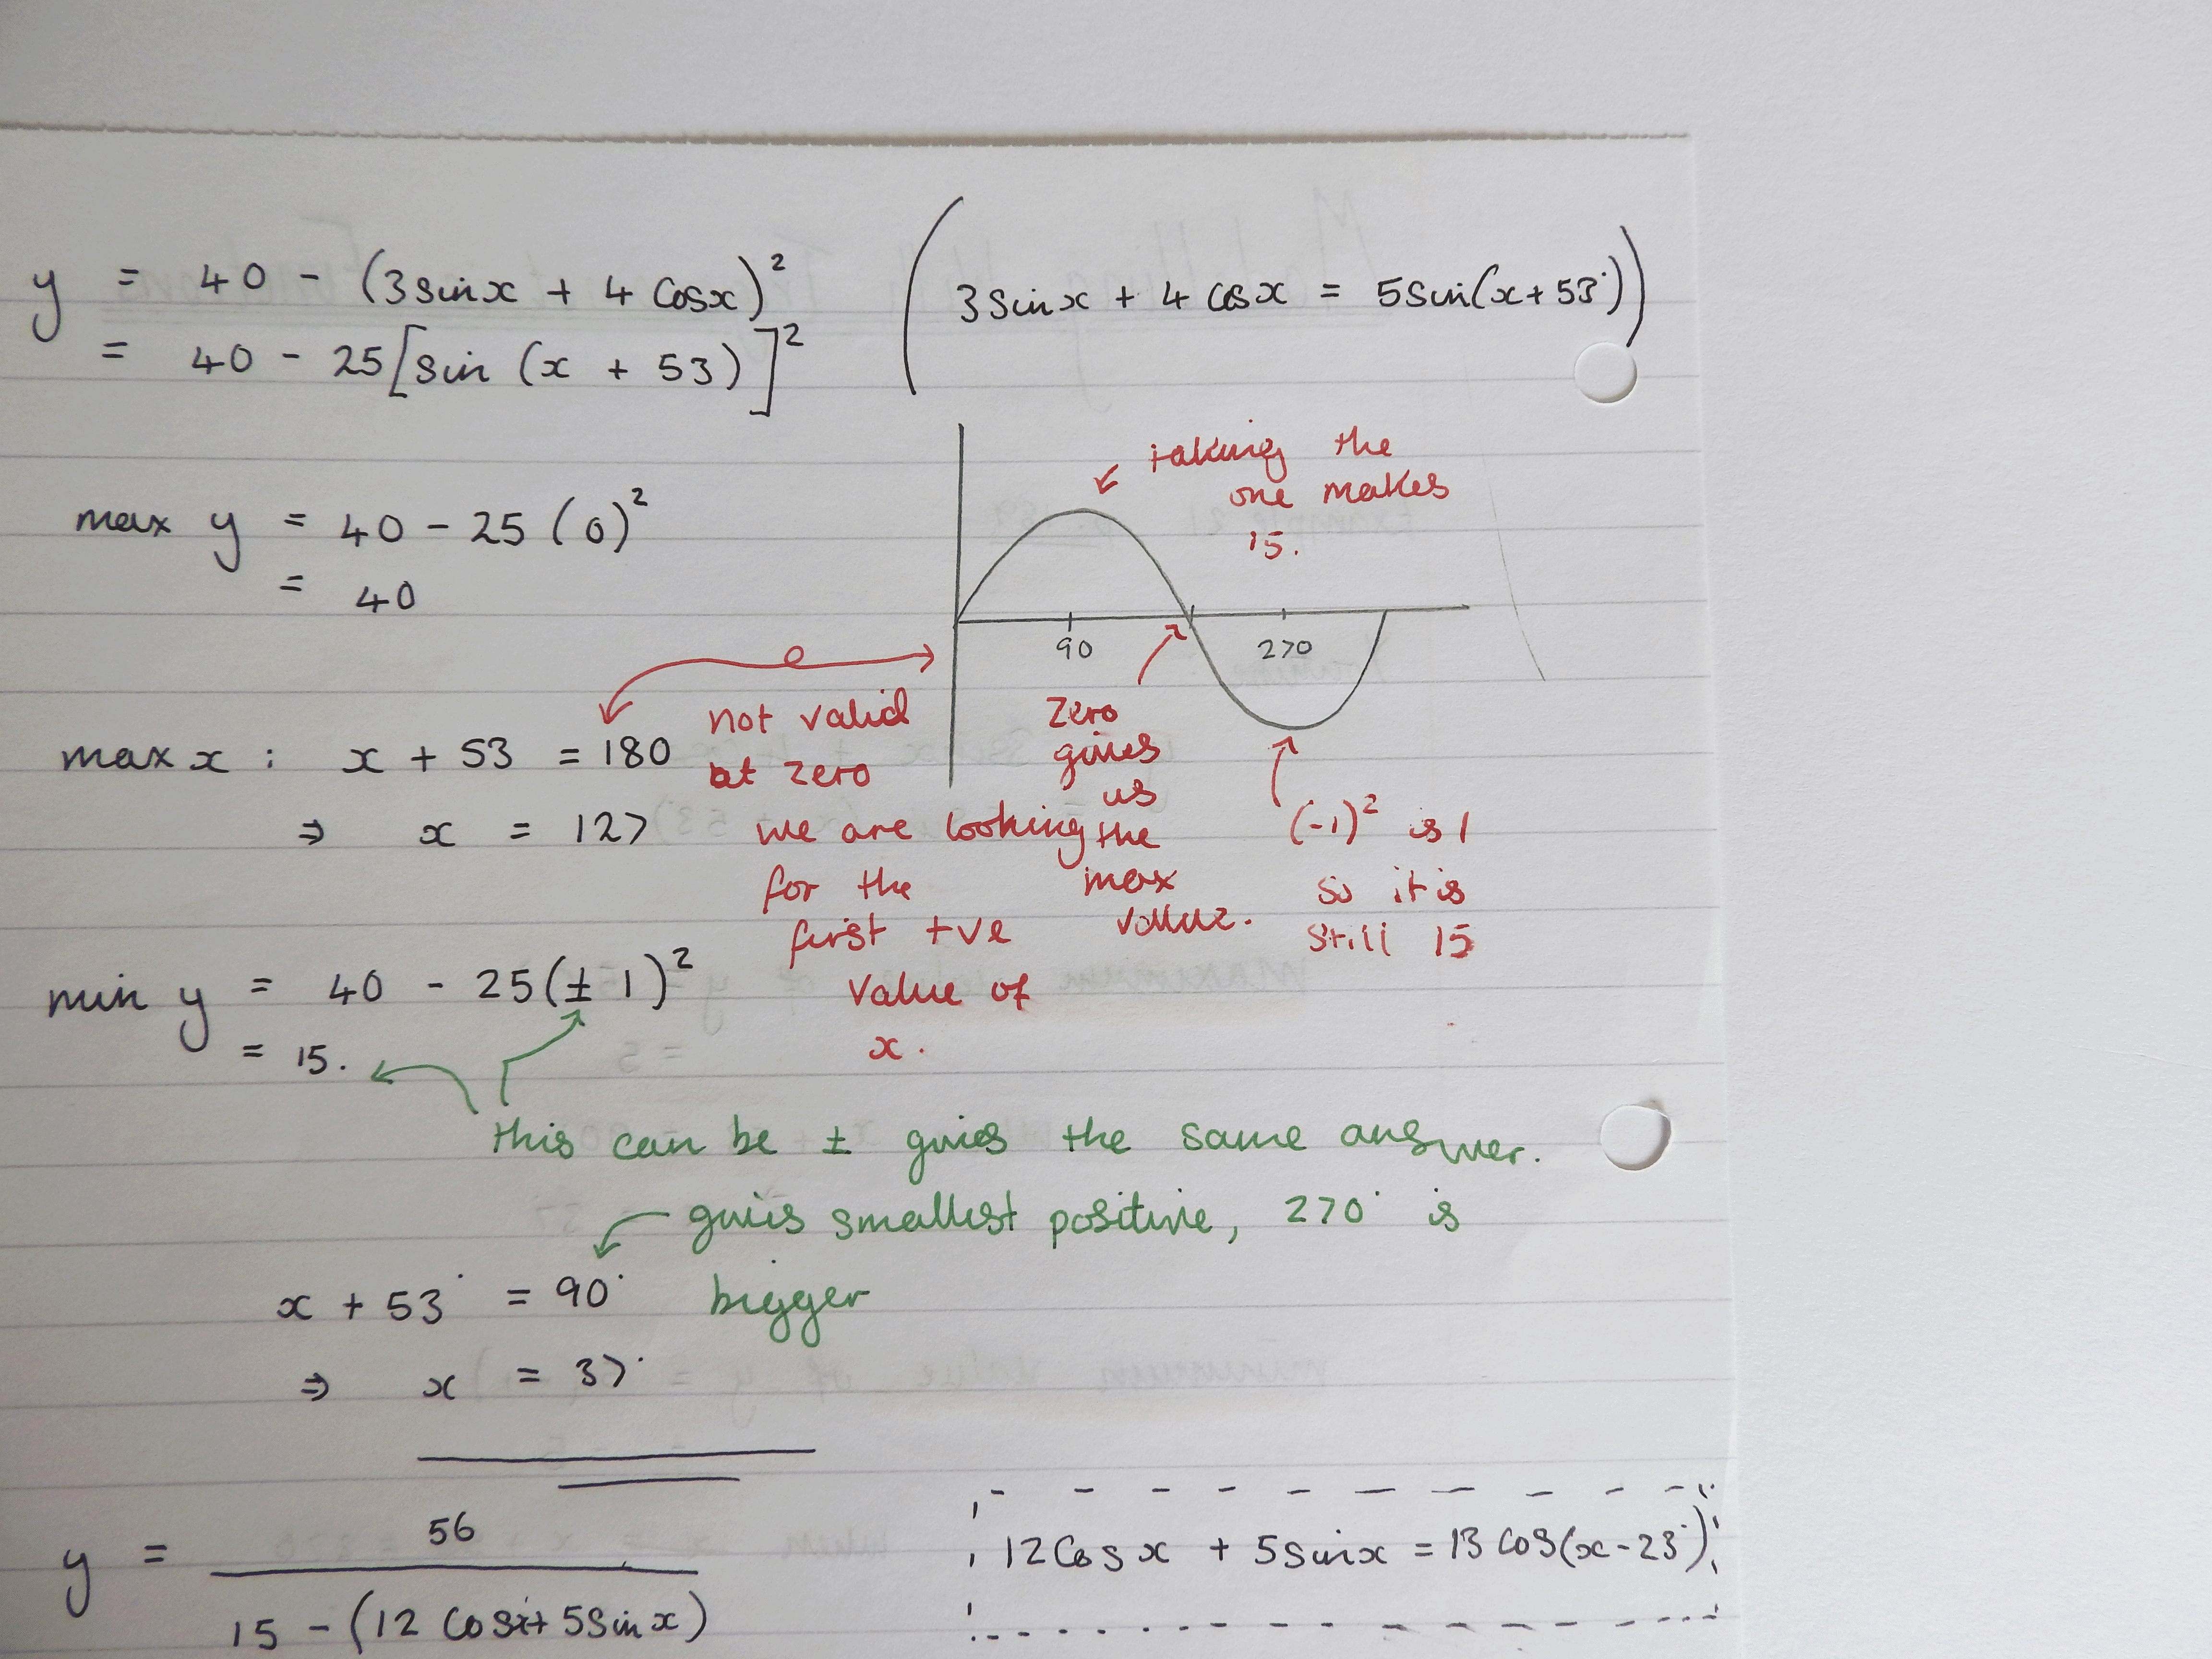 y = 40 - (3sinx + 4 Cosx)²
(3sinx + 4 cosx = 5sin(x+53°))
= 40 - 25[sin (x + 53)]²
taking the
one makes
15.
max y = 40 - 25 (0)²
= 40
90
270
not valid
at zero
we are looking
for the
first +ve
value of
x.
zero
gives
us
the
max
value.
(-1)² is 1
so it is
still 15
max x : x + 53 = 180
⇒ x = 127
min y = 40 - 25(± 1)²
= 15.
this can be ± gives the same answer.
gives smallest positive, 270° is
bigger
x + 53° = 90°
⇒ x = 37°
y = 56
15 - (12 Cosx + 5sinx)
12Cosx + 5sinx = 13 cos(x-23°)